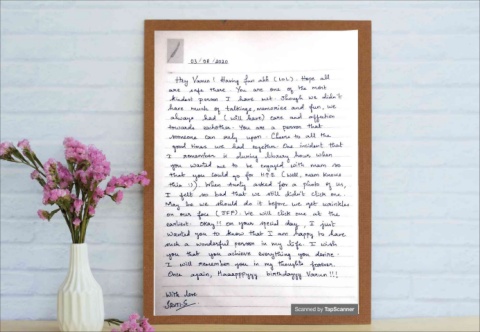 03/08/2020
Hey Varun! Having fun ahh (LOL). Hope all
are safe there. You are one of the most
kindest person I have met. Though we didn't
have much of talkings, memories and fun, we
always had (will have) care and affection
towards eachother. You are a person that
someone can rely upon. Cheers to all the
good times we had together. One incident that
I remember is during library hour when
you wanted me to be engaged with mam so
that you could go for H.P.E (Well, mam knows
this :)). When asked for a photo of us,
I felt so bad that we still didn't click one.
May be we should do it before we get wrinkles
on our face (JFF). We will click one at the
earliest. Okay!! On your special day, I just
wanted you to know that I am happy to have
such a wonderful person in my life. I wish
you that you achieve everything you desire.
I will remember you in my thoughts forever.
Once again, Haaappyyy birthdayyy Varun!!!
With love
Scanned by TapScanner